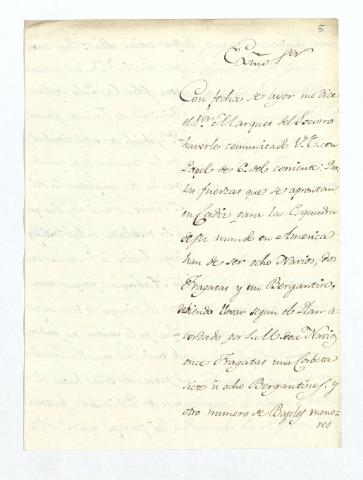 5
Exmo Sor
Con fecha de ayer me dice
el Sor Marques del Socorro
haverle comunicado V.E. con
Papel de 6. del corriente: Que
las fuerzas que se aprontan
en Cadiz para la Esquadra
de su mando en America
han de ser ocho Navios, dos
Fragatas y un Bergantin,
debiendo llevar segun el Plan a-
cordado por S.M. doce Navios
once Fragatas una Corbeta
siete ú ocho Bergantines, y
otro numero de Bajeles meno-
res